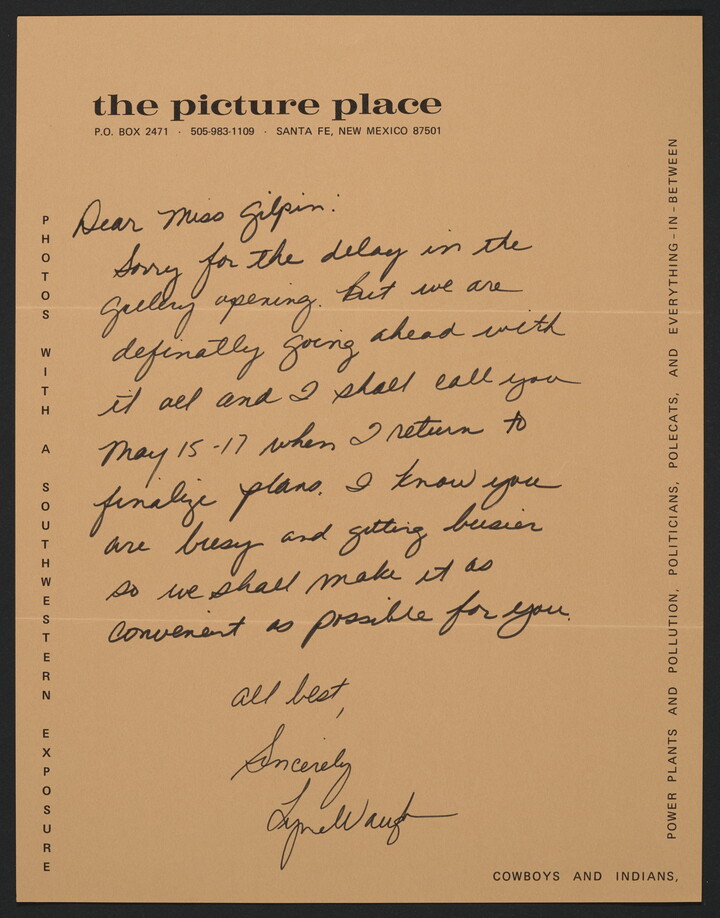 the picture place
P.O. BOX 2471 · 505-983-1109 · SANTA FE, NEW MEXICO 87501
PHOTOS WITH A SOUTHWESTERN EXPOSURE
Dear Miss Gilpin:
Sorry for the delay in the
gallery opening. but we are
definatly going ahead with
it all and I shall call you
May 15-17 when I return to
finalize plans. I know you
are busy and getting busier
so we shall make it as
convenient as possible for you.
all best,
Sincerely
Lyne Waugh
COWBOYS AND INDIANS,
POWER PLANTS AND POLLUTION, POLITICIANS, POLECATS, AND EVERYTHING-IN-BETWEEN